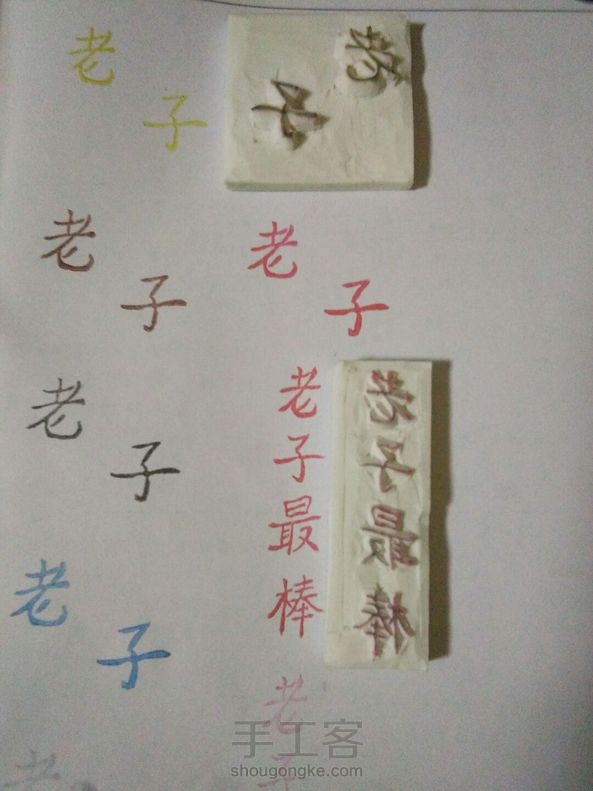 老子
老
子
老子
老子
老子
老子最棒
老子最棒
老子
老子
老
手工客
shougongke.com
老